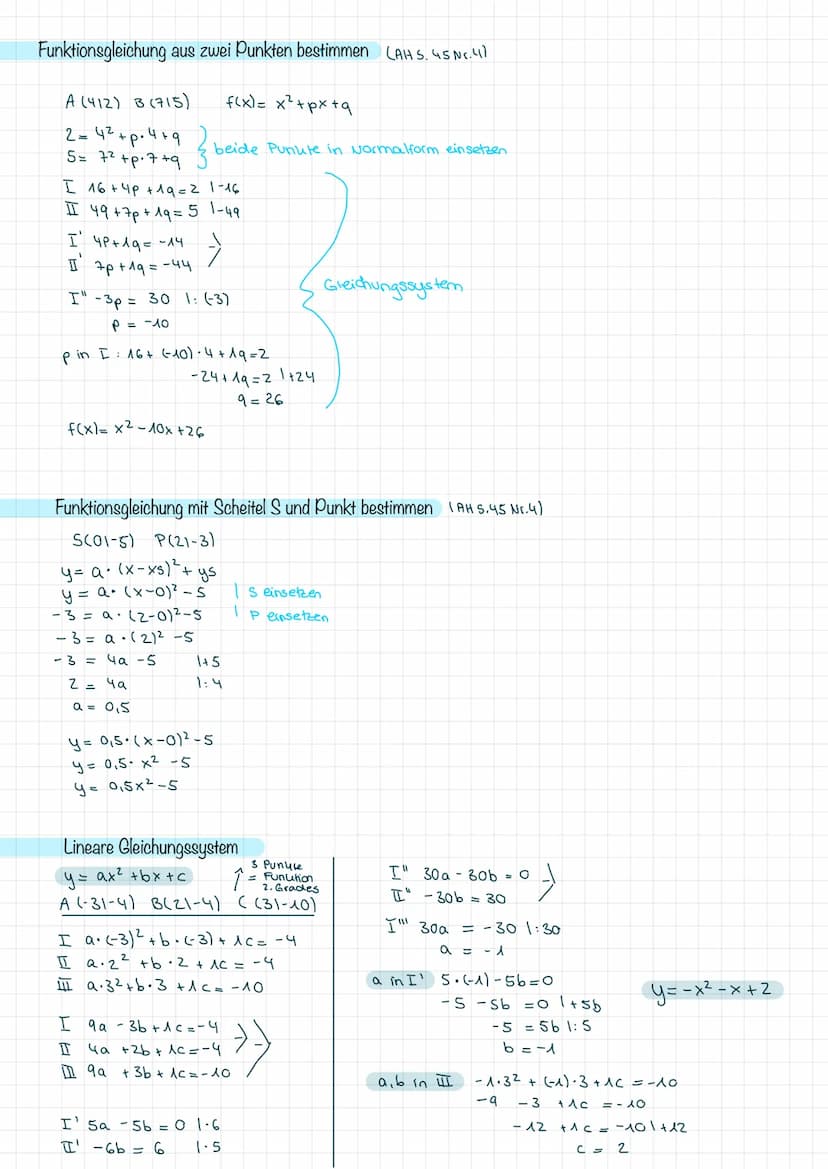 Funktionsgleichung aus zwei Punkten bestimmen (AH S. 45 Nr. 4)
A (4|2) B (7|5) f(x) = x² + px + q
2 = 4² + p · 4 + q
5 = 7² + p · 7 + q
beide Punkte in Normalform einsetzen
I 16 + 4p + 1q = 2 |-16
II 49 + 7p + 1q = 5 |-49
I' 4p + 1q = -14
II' 7p + 1q = -44
Gleichungssystem
I'' -3p = 30 |: (-3)
p = -10
p in I : 16 + (-10) · 4 + 1q = 2
-24 + 1q = 2 |+24
q = 26
f(x) = x² - 10x + 26
Funktionsgleichung mit Scheitel S und Punkt bestimmen (AH S. 45 Nr. 4)
S(0|-5) P(2|-3)
y = a · (x - xs)² + ys
y = a · (x - 0)² - 5 | S einsetzen
-3 = a · (2 - 0)² - 5 | P einsetzen
-3 = a · (2)² - 5
-3 = 4a - 5 |+5
2 = 4a |: 4
a = 0,5
y = 0,5 · (x - 0)² - 5
y = 0,5 · x² - 5
y = 0,5x² - 5
Lineare Gleichungssystem
y = ax² + bx + c
↑ 3 Punkte
= Funktion
2. Grades
A (-3|-4) B(2|-4) C (3|-10)
I a · (-3)² + b · (-3) + 1c = -4
II a · 2² + b · 2 + 1c = -4
III a · 3² + b · 3 + 1c = -10
I 9a - 3b + 1c = -4
II 4a + 2b + 1c = -4
III 9a + 3b + 1c = -10
I' 5a - 5b = 0 | · 6
II' -6b = 6 | · 5
I'' 30a - 30b = 0
II'' -30b = 30
I''' 30a = -30 |: 30
a = -1
a in I' 5 · (-1) - 5b = 0
-5 - 5b = 0 |+5b
-5 = 5b |: 5
b = -1
y = -x² - x + 2
a, b in III -1 · 3² + (-1) · 3 + 1c = -10
-9 - 3 + 1c = -10
-12 + 1c = -10 |+12
c = 2